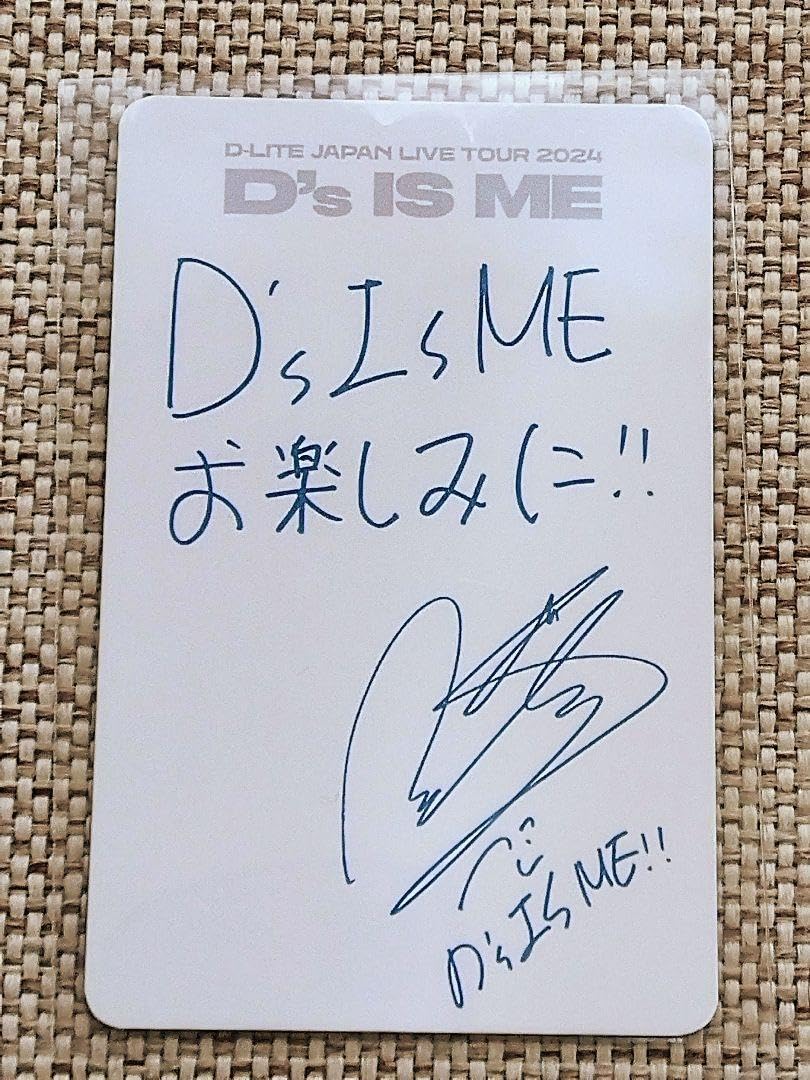 D-LITE JAPAN LIVE TOUR 2024
D's IS ME
D's Is ME
お楽しみに!!
D's IS ME!!